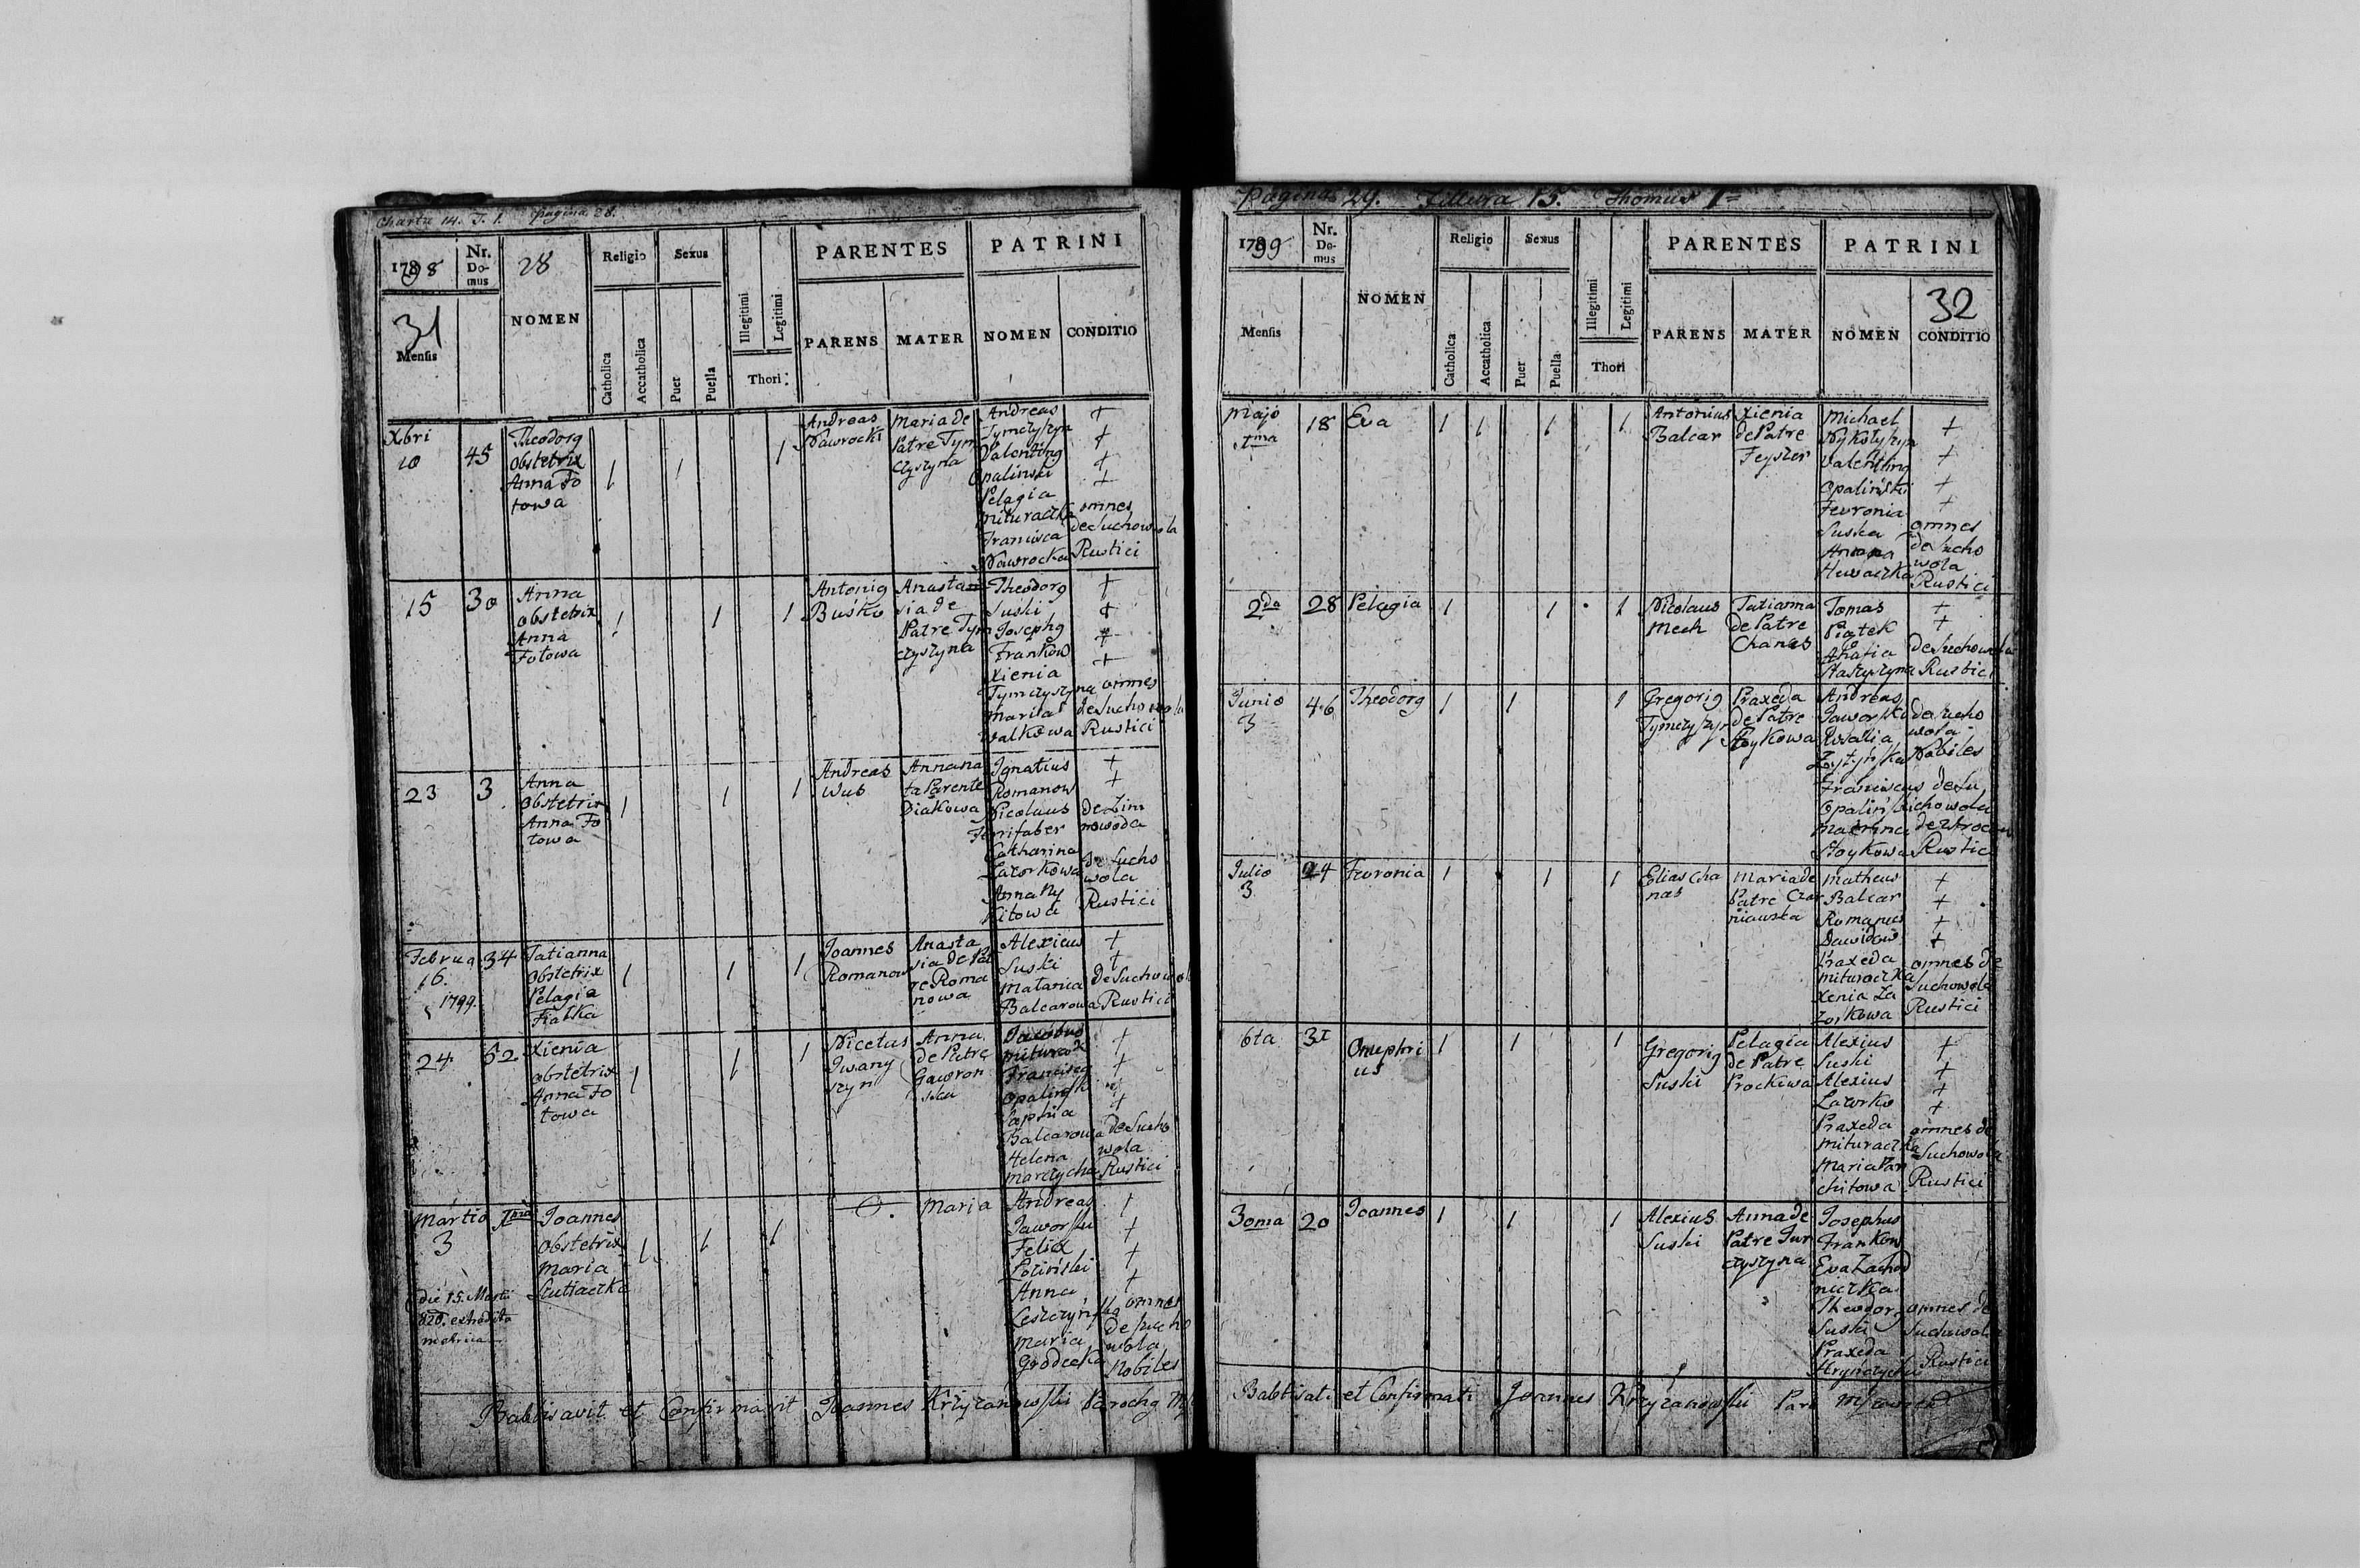 Charta 14. T. 1. pagina 28.
1798
Nr. Domus
28
NOMEN
Religio
Sexus
Illegitimi
Legitimi
PARENTES
PATRINI
31
Mensis
Catholica
Accatholica
Puer
Puella
Thori
PARENS
MATER
NOMEN
CONDITIO
Xbri
10
45
Theodorg
Obstetrix
Anna Fo
towa
1
1
1
Andreas
Nawrocki
Maria de
Patre Tym
czyszyna
Andreas
Tymczyszyn
Valenting
Opalinski
Pelagia
Mituraczka
Francisca
Nawrocka
+
+
+
+
omnes
de Suchowola
Rustici
15
30
Anna
Obstetrix
Anna
Fotowa
1
1
1
Antonig
Busko
Anasta
sia de
Patre Tym
czyszyna
Theodorg
Suski
Josephg
Frankow
Xienia
Tymczyszyna
Maria
Walkowa
+
+
+
+
omnes
de Suchowola
Rustici
23
3
Anna
Obstetrix
Anna Fo
towa
1
1
1
Andreas
Wus
Anna na
ta Parente
Diakowa
Ignatius
Romanow
Nicolaus
Ferrifaber
Catharina
Lazorkowa
Anna Ny
kitowa
+
+
de Zim
nowoda
de Sucho
wola
Rustici
Februa
16.
1799.
34
Tatianna
Obstetrix
Pelagia
Fialka
1
1
1
Joannes
Romanow
Anasta
sia de Pat
re Roma
nowa
Alexius
Suski
Matania
Balcarowa
+
+
de Suchowola
Rustici
24
52
Xienia
obstetrix
Anna Fo
towa
1
1
1
Nicetus
Iwany
szyn
Anna
de Patre
Gawron
ska
Jacobus
Miturak
Franciscg
Opalinsk
Sophia
Balcarowa
Helena
Marczycha
+
+
+
de Sucho
wola
Rustici
Martio
3
1ma
Joannes
Obstetrix
Maria
Szutiaczka
1
1
1
O.
Maria
Andreas
Jaworski
Felix
Loziński
Anna
Leszczyńska
Maria
Grodecka
+
+
+
+
omnes
de Sucho
wola
Nobiles
die 15. Martii
820. extradita
metrica
Babtisavit et Confirmavit Joannes Krzyzanowski Parochg
Pagina 29. Fillura 15. Thomus 1
1799
Nr. Domus
NOMEN
Religio
Sexus
Illegitimi
Legitimi
PARENTES
PATRINI
32
Mensis
Catholica
Accatholica
Puer
Puella
Thori
PARENS
MATER
NOMEN
CONDITIO
Majo
1ma
18
Eva
1
1
1
1
Antonius
Balcar
Xienia
de Patre
Feyster
Michael
Nykityszyn
Valenting
Opaliński
Fevronia
Suska
Anna
+
+
+
+
omnes
de Sucho
wola
Rustici
2da
28
Pelagia
1
1
1
Nicolaus
Mech
Tatianna
de Patre
Chanas
Tomas
Piątek
Staszyszyna
+
+
de Suchowola
Rustici
Junio
3
46
Theodorg
1
1
1
Gregorig
Tymczyszyn
Praxeda
de Patre
Stoykowa
Andreas
Jaworski
Rosalia
de Sucho
wola
Nobiles
Franciscus
Opaliński
Stoykowa
de Su
chowola
Rustici
Julio
3
24
Fevronia
1
1
1
Elias Cha
nas
Maria de
Patre Czer
niawska
Matheus
Balcar
Romanus
Dawidow
Praxeda
Mituraczka
Xenia La
zorkowa
+
+
+
+
omnes de
Suchowola
Rustici
6ta
31
Onuphri
us
1
1
1
Gregorig
Suski
Pelagia
de Patre
Prockiwa
Alexius
Suski
Alexius
Lazorko
Praxeda
Mituraczka
Maria Pan
chitowa
+
+
+
+
omnes de
Suchowola
Rustici
30ma
20
Joannes
1
1
1
Alexius
Suski
Anna de
Patre Jur
czyszyna
Josephus
Frankow
Eva Zachod
niczka
Theodorg
Suski
Praxeda
Hrynczycha
omnes de
Suchowola
Rustici
Babtisati et Confirmati Joannes Krzyzanowski Paro